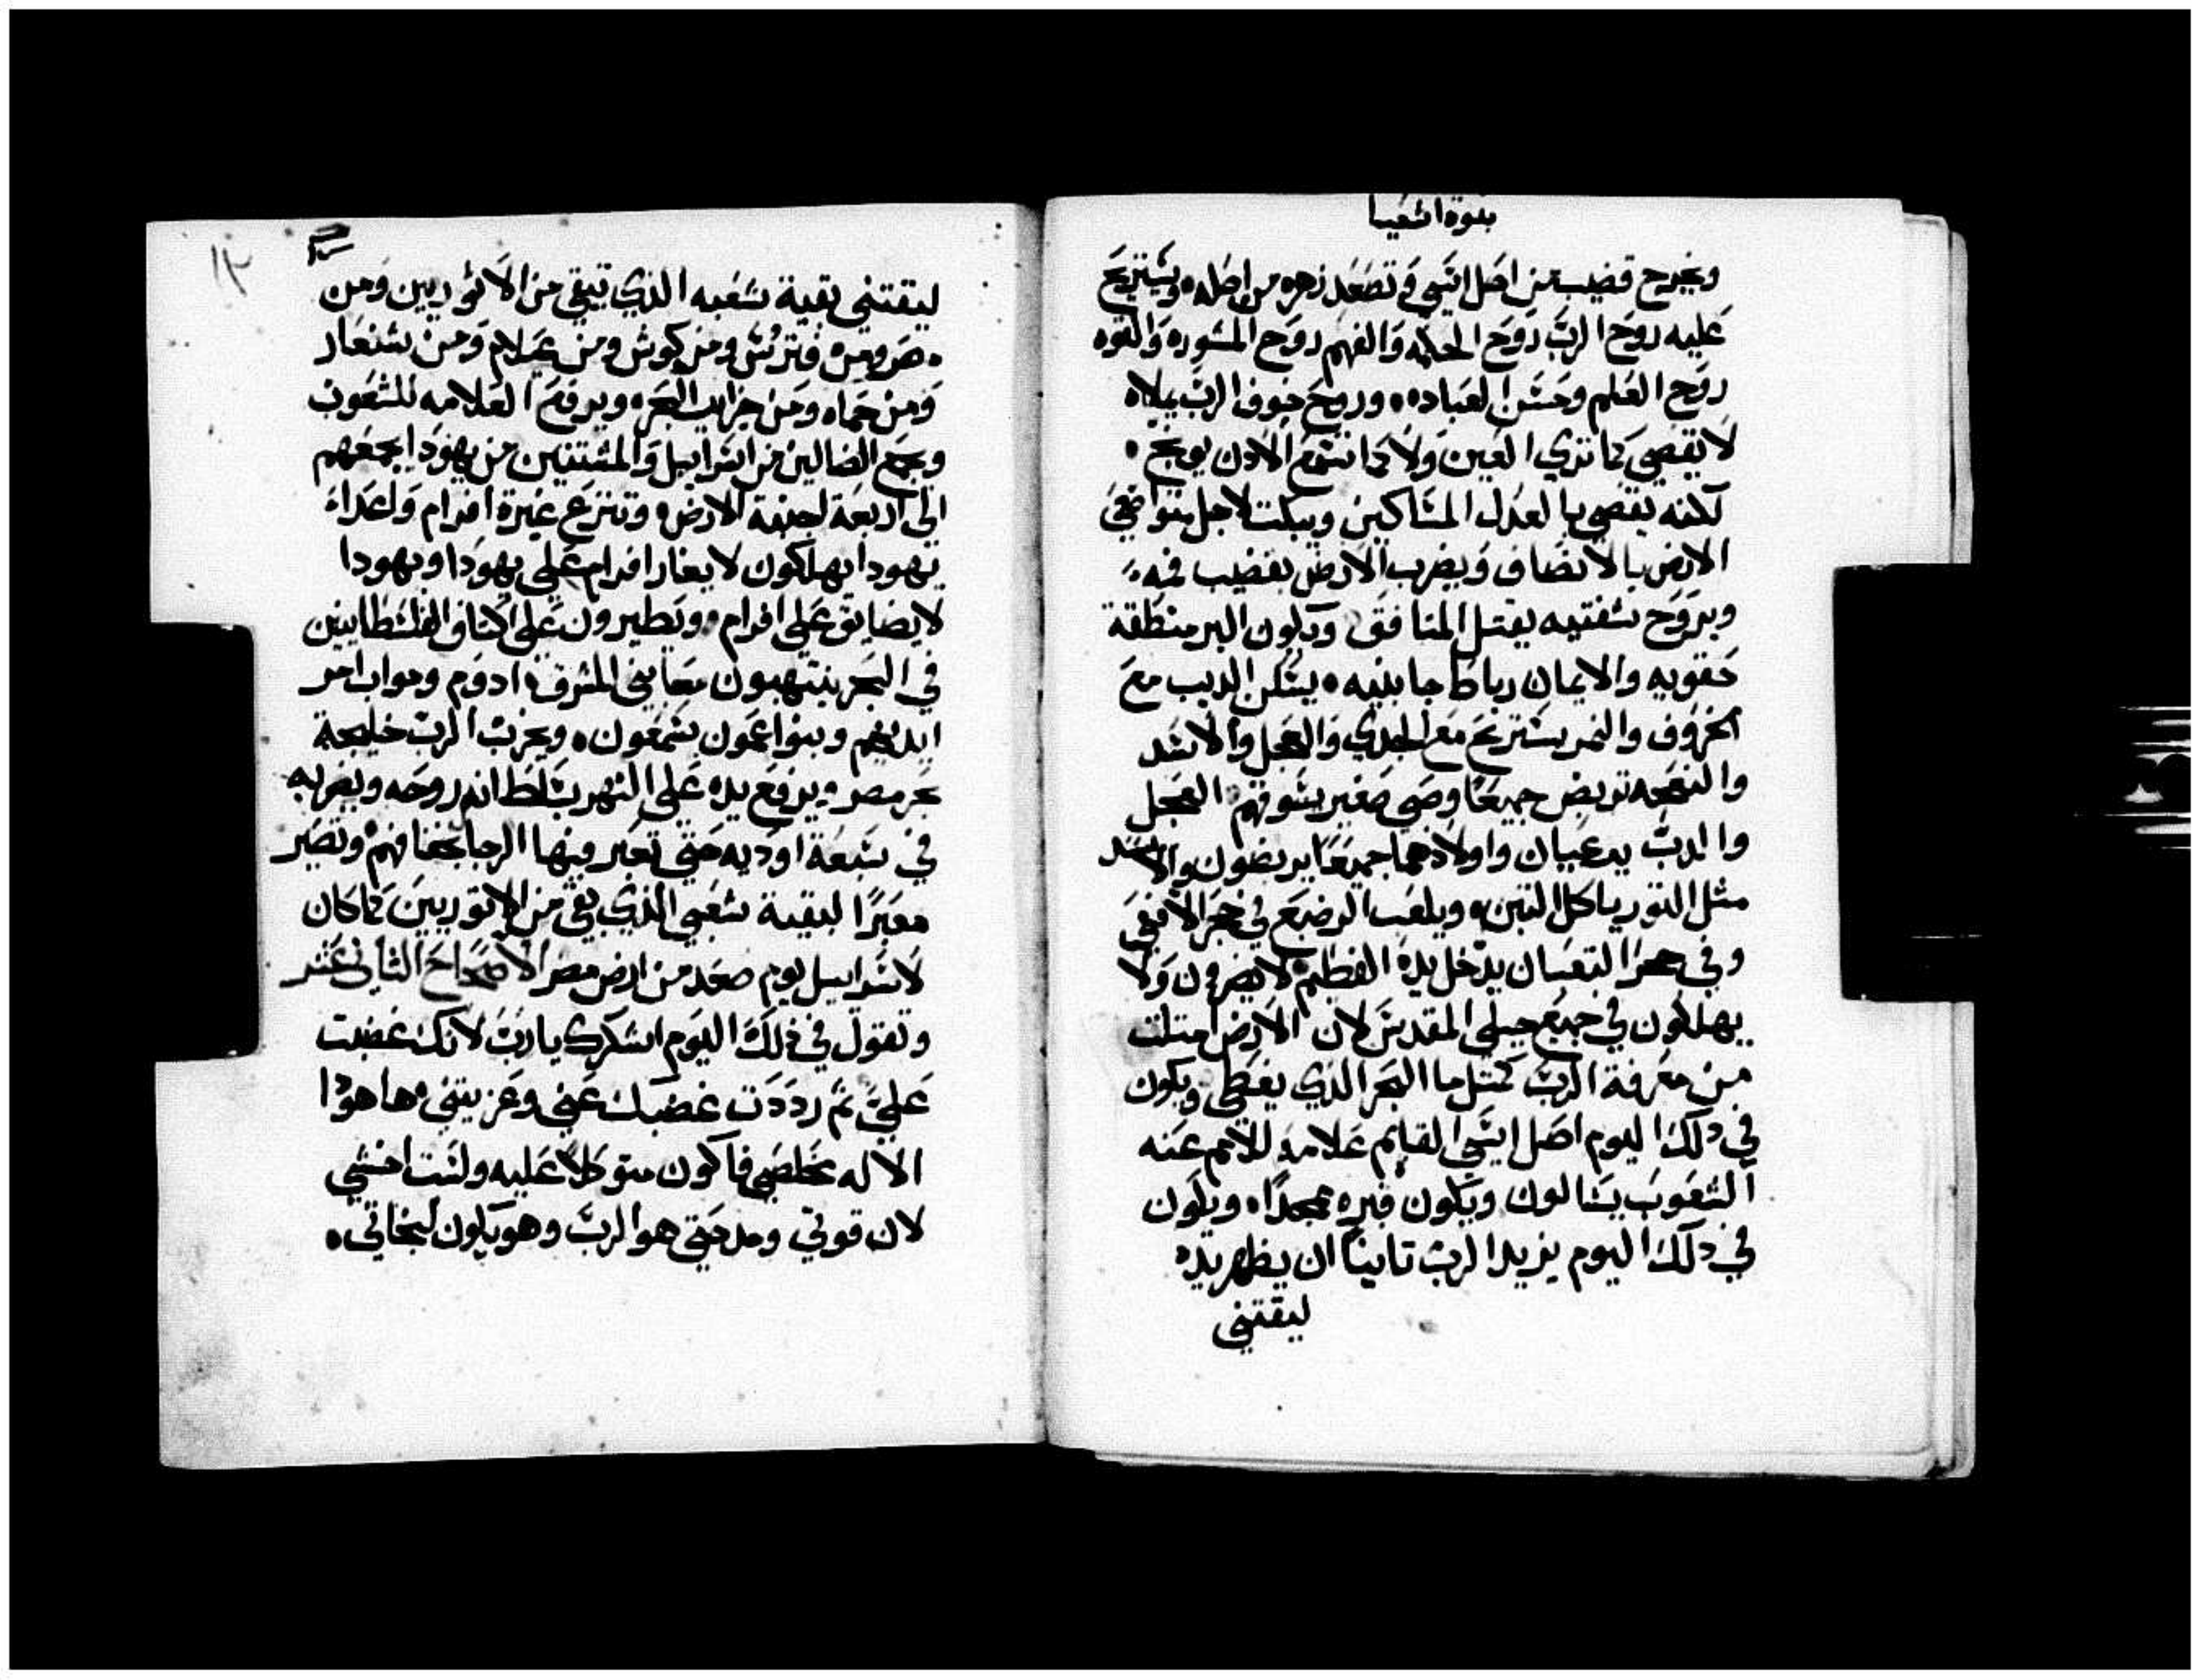 بنوة اشعيا
ويخرج قضيب من اصل ايسي وتصعد زهره من اصله ويستريح
عليه روح الرب روح الحكمه والفهم روح المشوره والقوه
روح العلم وحسن العباده وروح خوف الرب يملاه
لا يقضي كما تري العين ولا كما تسمع الادن يوبخ
لكنه يقضي بالعدل المساكين ويبكت لاجل متواضعي
الارض بالانصاف ويضرب الارض بقضيب فمه
وبروح شفتيه يقتل المنافق ويكون البر منطقة
حقويه والايمان رباط جانبيه يسكن الديب مع
الخروف والنمر يستريح مع الجدي والعجل والاسد
والنعجه تربض جميعًا وصبي صغير يسوقهم العجل
والدب يرعيان واولادهما جميعًا يربضون والاسد
مثل التور ياكل التبن ويلعب الرضيع في حجر الافعي
وفي حجر التعبان يدخل يده الفطيم لا يضرون ولا
يهلكون في جميع جبلي المقدس لان الارض امتلت
من معرفة الرب كمتل ما البحر الذي يغطي ويكون
في دلك اليوم اصل ايسي القايم علامه للامم عنه
الشعوب يسالون ويكون قبره ممجدًا ويكون
في دلك اليوم يزيد الرب تانيًا ان يظهر يده
ليقتني
ليقتني بقية شعبه الذي تبقي من الاتوريين ومن
مصر ومن فترتس ومن كوش ومن عيلام ومن شنعار
ومن حماه ومن جزاير البحر ويرفع العلامه للشعوب
ويجمع الضالين من اسراييل والمشتتين من يهودا يجمعهم
الى اربعة اجنحة الارض وتنزع غيرة افرام واعداء
يهودا يهلكون لا يغار افرام علي يهودا ويهودا
لا يضايق علي افرام ويطيرون علي اكتاف الفلسطانيين
في البحر ينتهبون معًا بني المشرق ادوم ومواب امر
ايديهم وبنوا عمون يسمعون ويخرب الرب خليجة
بحر مصر ويرفع يده علي النهر بتسلطانه روحه ويضربه
في سبعة اوديه حتي تعبر فيها الرجال بخفافهم وتصير
معبرًا لبقية شعبي الذي بقي من الاتوريين كما كان
لاسراييل يوم صعد من ارض مصر الاصحاح الثاني عشر
وتقول في ذلك اليوم اشكرك يا رب لانك غضبت
علي ثم رددت غضبك عني وعزيتني ها هودا
الاله مخلصي فاكون متوكلًا عليه ولست اخشي
لان قوتي ومدحتي هو الرب وهو يكون لنجاتي